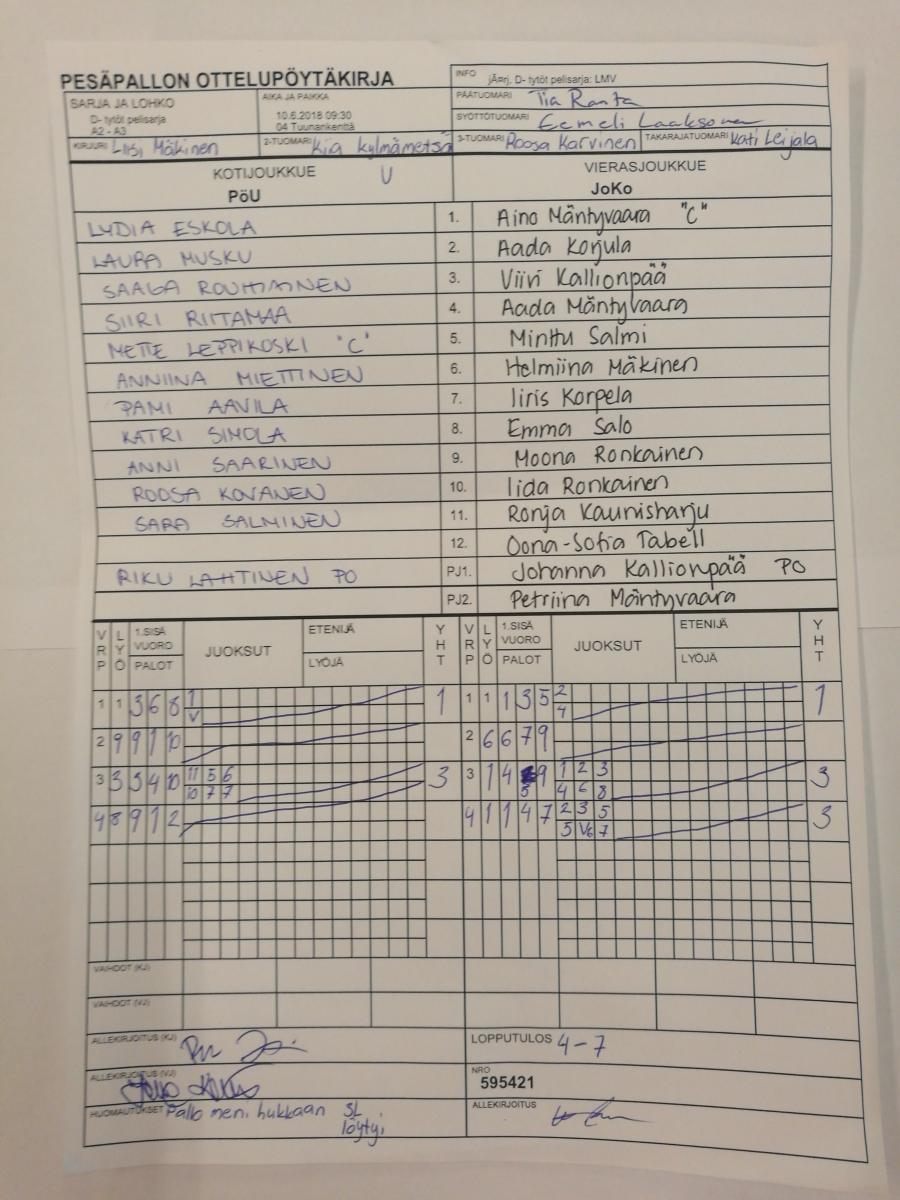 PESÄPALLON OTTELUPÖYTÄKIRJA
INFO jÄ¤rj. D- tytöt pelisarja: LMV
SARJA JA LOHKO
D- tytöt pelisarja
A2 - A3
AIKA JA PAIKKA
10.6.2018 09:30
04 Tuunankenttä
PÄÄTUOMARI Tia Ranta
SYÖTTÖTUOMARI Eemeli Laaksonen
KIRJURI Liisi Mäkinen 2-TUOMARI Kia Kylmämetsä 3-TUOMARI Roosa Karvinen TAKARAJATUOMARI Kati Leijala
KOTIJOUKKUE U
PöU
VIERASJOUKKUE
JoKo
LYDIA ESKOLA 1. Aino Mäntyvaara "C"
LAURA MUSKU 2. Aada Korjula
SAAGA ROUHIAINEN 3. Viivi Kallionpää
SIIRI RIITAMAA 4. Aada Mäntyvaara
METTE LEPPIKOSKI "C" 5. Minttu Salmi
ANNIINA MIETTINEN 6. Helmiina Mäkinen
PAMI AAVILA 7. Iiris Korpela
KATRI SIMOLA 8. Emma Salo
ANNI SAARINEN 9. Moona Ronkainen
ROOSA KOVANEN 10. Iida Ronkainen
SARA SALMINEN 11. Ronja Kaunisharju
12. Oona-Sofia Tabell
RIKU LAHTINEN PO PJ1. Johanna Kallionpää PO
PJ2. Petriina Mäntyvaara
VRP LYÖ 1.SISÄ VUORO PALOT JUOKSUT ETENIJÄ LYÖJÄ YHT VRP LYÖ 1.SISÄ VUORO PALOT JUOKSUT ETENIJÄ LYÖJÄ YHT
1 1 3 6 8 1 1 1 1 1 3 5 2 1
V 4
2 9 9 1 10 2 6 6 7 9
3 3 3 4 10 11 5 6 3 3 1 4 9 1 2 3 3
10 7 7 5 4 6 8
4 8 9 1 2 4 1 1 4 7 2 3 5 3
5 V6 7
VAIHDOT (KJ)
VAIHDOT (VJ)
ALLEKIRJOITUS (KJ)
LOPPUTULOS 4-7
ALLEKIRJOITUS (VJ)
NRO
595421
HUOMAUTUKSET Pallo meni hukkaan SL
löytyi
ALLEKIRJOITUS